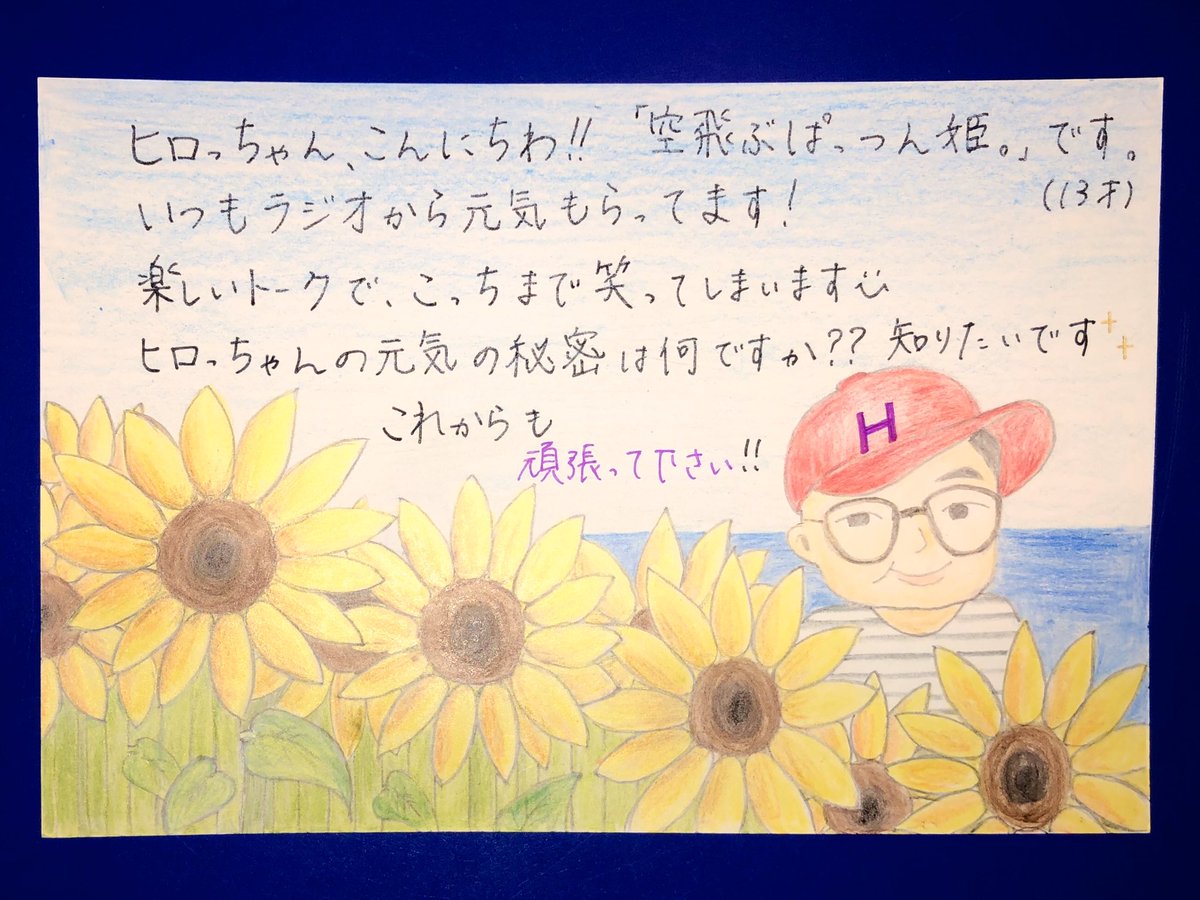 ヒロっちゃん、こんにちわ!! 「空飛ぶぱっつん姫。」です。
(13才)
いつもラジオから元気もらってます!
楽しいトークで、こっちまで笑ってしまいます
ヒロっちゃんの元気の秘密は何ですか?? 知りたいです
これからも
頑張って下さい!!
H